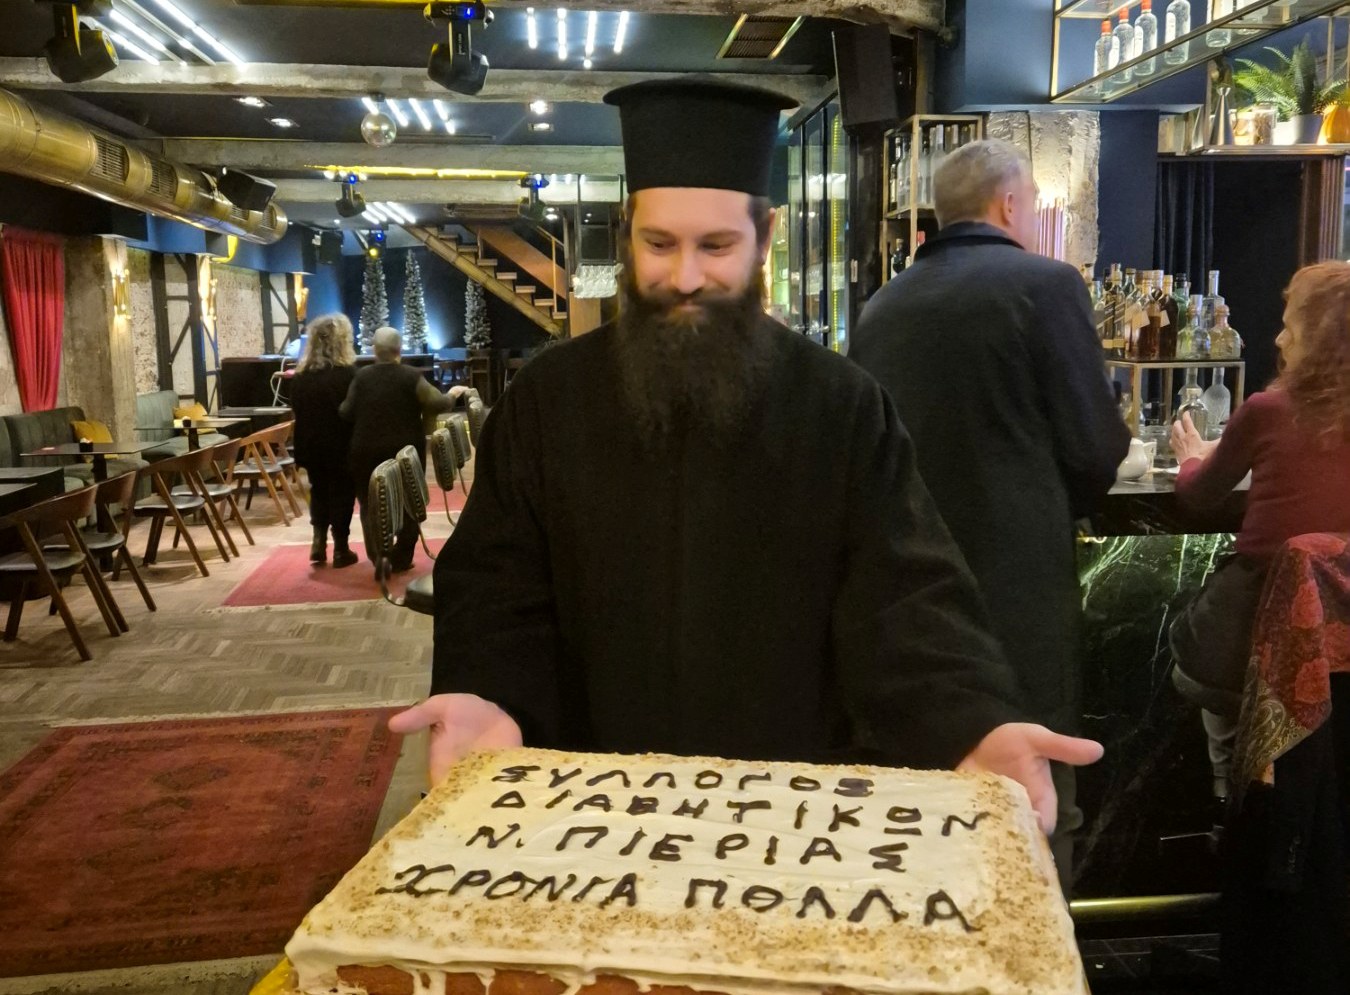 ΣΥΛΛΟΓΟΣ
ΔΙΑΒΗΤΙΚΩΝ
Ν. ΠΙΕΡΙΑΣ
ΧΡΟΝΙΑ ΠΟΛΛΑ